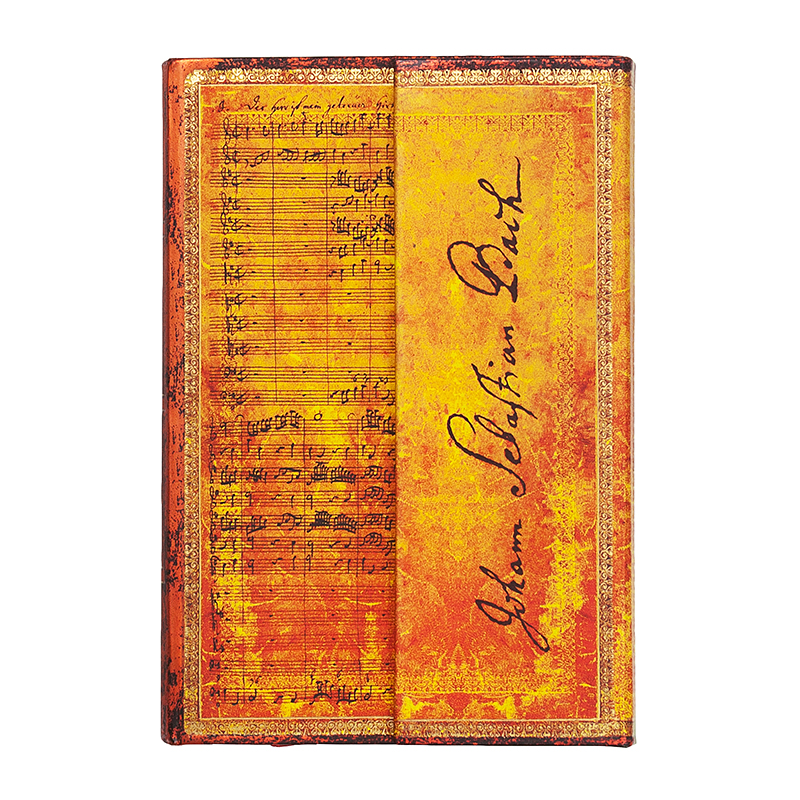 Der Herr ist mein getreuer Hir
Johann Sebaſtian Bach